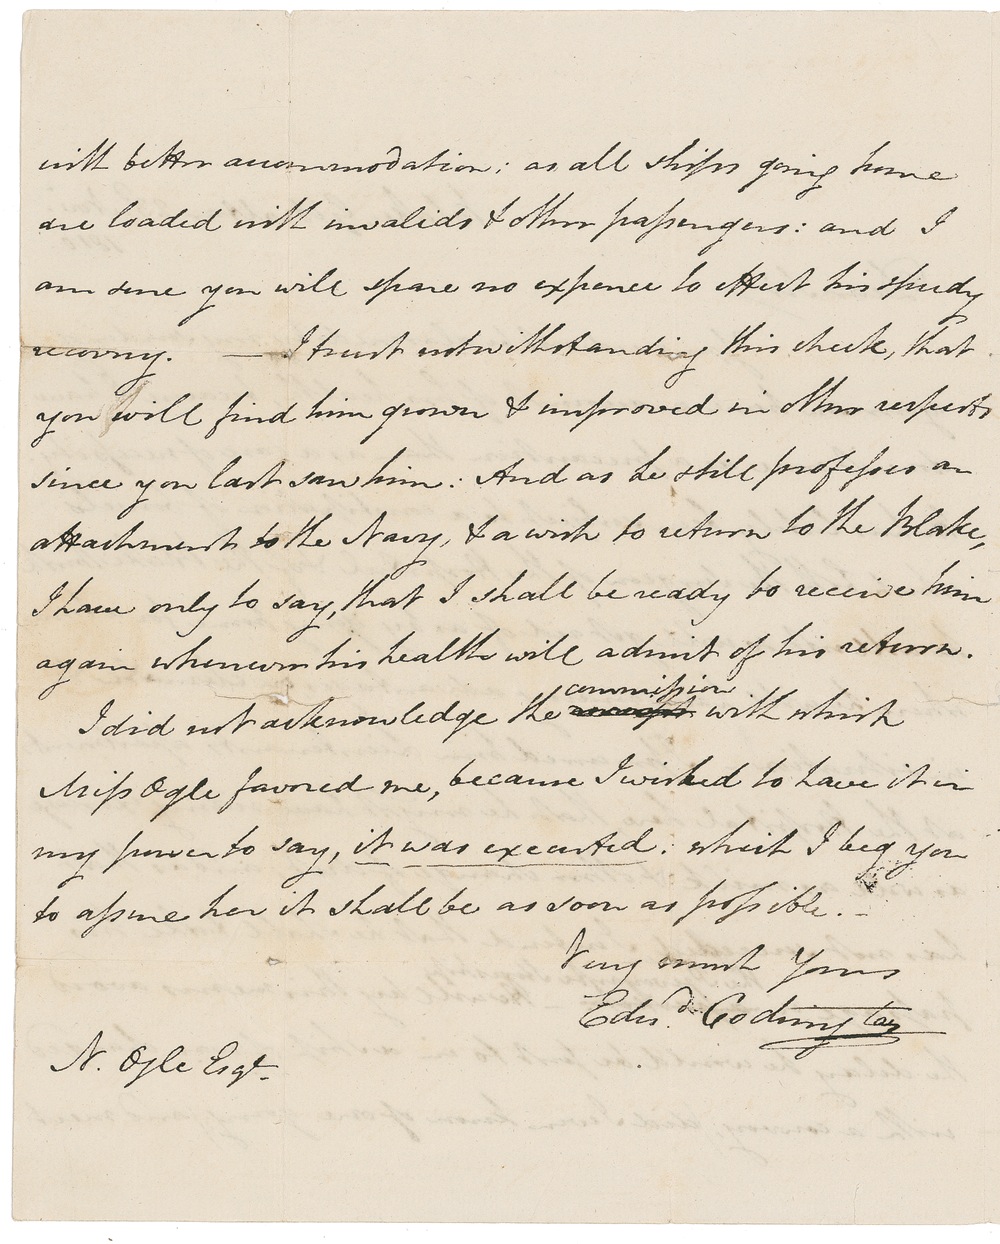 with better accommodation: as all ships going home
are loaded with invalids & other passengers: and I
am sure you will spare no expence to effect his speedy
recovery. — I trust notwithstanding this check, that
you will find him grown & improved in other respects
since you last saw him: And as he still professes an
attachment to the Navy, & a wish to return to the Blake,
I have only to say, that I shall be ready to receive him
again whenever his health will admit of his return.
I did not acknowledge the commission with which
Miss Ogle favored me, because I wished to have it in
my power to say, it was executed: which I beg you
to assure her it shall be as soon as possible. –
Very much Yours
Edwd. Codrington
N. Ogle Esqr.